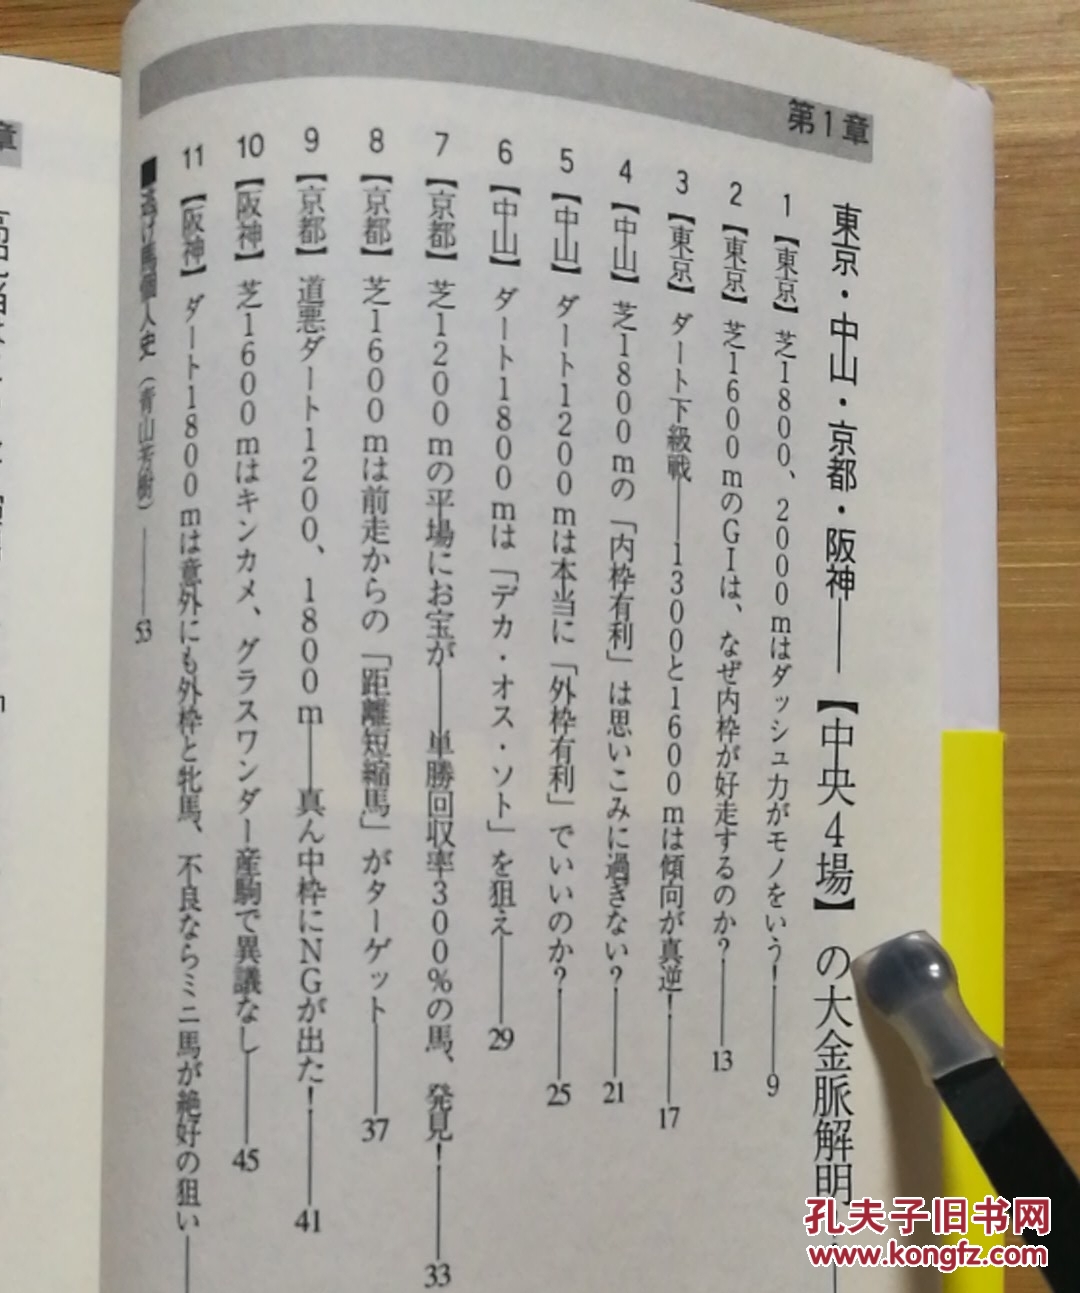 第1章
東京・中山・京都・阪神――【中央4場】の大金脈解明
1【東京】芝1800、2000mはダッシュ力がモノをいう！――9
2【東京】芝1600mのGIは、なぜ内枠が好走するのか？――13
3【東京】ダート下級戦――1300と1600mは傾向が真逆！――17
4【中山】芝1800mの「内枠有利」は思いこみに過ぎない？――21
5【中山】ダート1200mは本当に「外枠有利」でいいのか？――25
6【中山】ダート1800mは「デカ・オス・ソト」を狙え――29
7【京都】芝1200mの平場にお宝が――単勝回収率300%の馬、発見！――33
8【京都】芝1600mは前走からの「距離短縮馬」がターゲット――37
9【京都】道悪ダート1200、1800m――真ん中枠にNGが出た！――41
10【阪神】芝1600mはキンカメ、グラスワンダー産駒で異議なし――45
11【阪神】ダート1800mは意外にも外枠と牝馬、不良ならミニ馬が絶好の狙い――
■逃げ馬個人史（青山芳樹）――53
章
孔夫子旧书网
www.kongfz.com